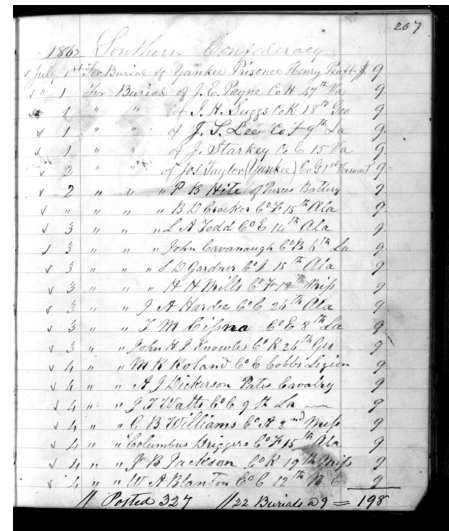 207
1862 Southern Confederacy
v July 1st For Burial of Yankee Prisoner Henry $ 9
v " 1 For Burial of J. E. Payne Co H 47th Va 9
v " 1 " " of J. H. Suggs Co K 18th Geo 9
v 1 " " of J. S. Lee Co F 9th La 9
v 1 " " of J. Starkey Co E 15 Va 9
v 2 " " of Jos Taylor (Yankee) Co G 1st Vermont 9
v 2 " " " P B Hite of Battery 9
v " " " " B D Crocker Co F 15th Ala 9
v 3 " " " L A Todd Co E 14th Ala 9
v 3 " " " John Cavanaugh Co B 6th La 9
v 3 " " " S D Gardner Co I 15th Ala 9
v 3 " " " H H Mills Co F 12th Miss 9
v 3 " " " J A Hardee Co C 26th Ala 9
v 3 " " " T M Cissna Co E 8th La 9
v 3 " " " John H J Knowles Co K 26th Geo 9
v 4 " " " M R Roland Co E Cobbs Legion 9
v 4 " " " A J Dickerson Pates Cavalry 9
v 4 " " " J T Watts Co C 9th La 9
v 4 " " " C B Williams Co A 2nd Miss 9
v 4 " " " Columbus Driggers Co F 15th Ala 9
v 4 " " " J B Jackson Co K 19th Miss 9
v 4 " " " W A Blanton Co C 12th N C 9
// Posted 327 //22 Burials @ 9 = 198